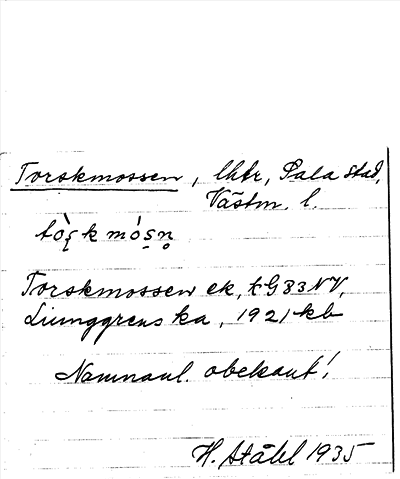 Torskmossen, lhtr, Sala stad,
Västm. l.
tò̀ʂk mósn̥
Torskmossen ek, tG 83 NV,
Ljunggrens ka, 1921 kb
Namnaul. obekant!
H. Ståhl 1935